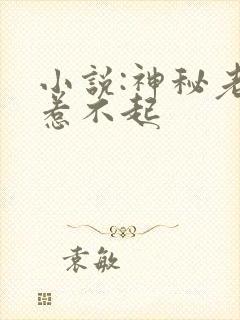 小说:神秘老
惹不起
袁敏